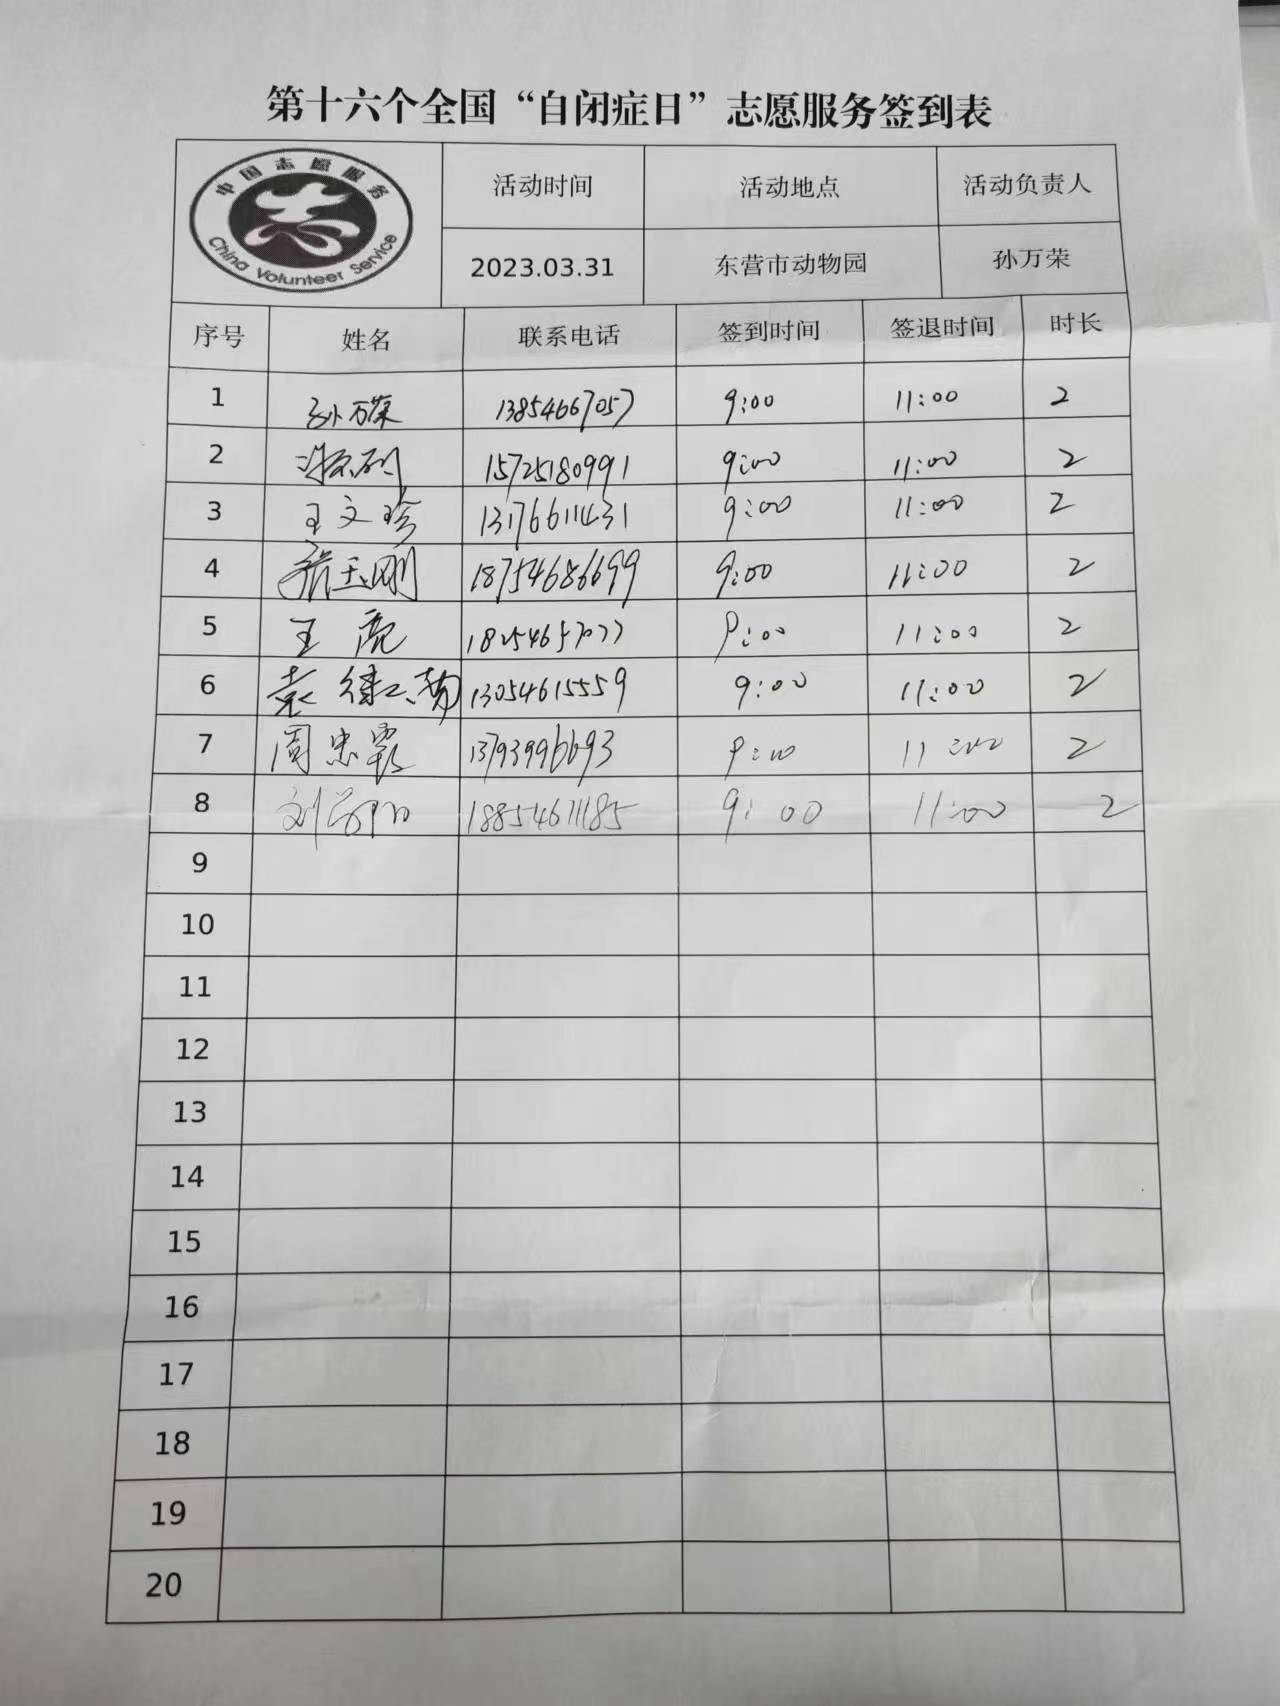 第十六个全国“自闭症日”志愿服务签到表
中国志愿服务
China Volunteer Service
活动时间 活动地点 活动负责人
2023.03.31 东营市动物园 孙万荣
序号 姓名 联系电话 签到时间 签退时间 时长
1 孙万荣 13854667057 9:00 11:00 2
2 15725180991 9:00 11:00 2
3 王文珍 13176611431 9:00 11:00 2
4 张玉刚 18754686699 9:00 11:00 2
5 王亮 18254657077 9:00 11:00 2
6 袁 13054615559 9:00 11:00 2
7 周忠霞 13793996693 9:00 11:00 2
8 刘 18854611185 9:00 11:00 2
9
10
11
12
13
14
15
16
17
18
19
20